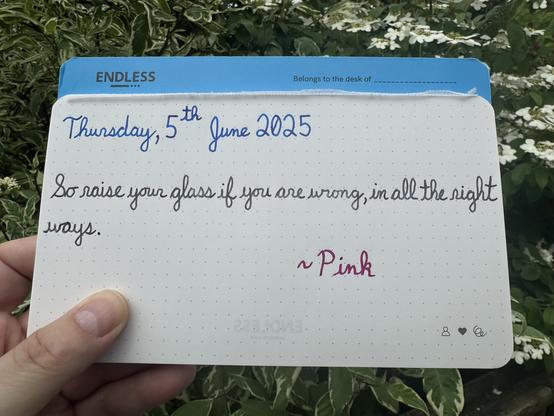 ENDLESS
Belongs to the desk of
Thursday, 5th June 2025
So raise your glass if you are wrong, in all the right
ways.
~ Pink
ENDLESS